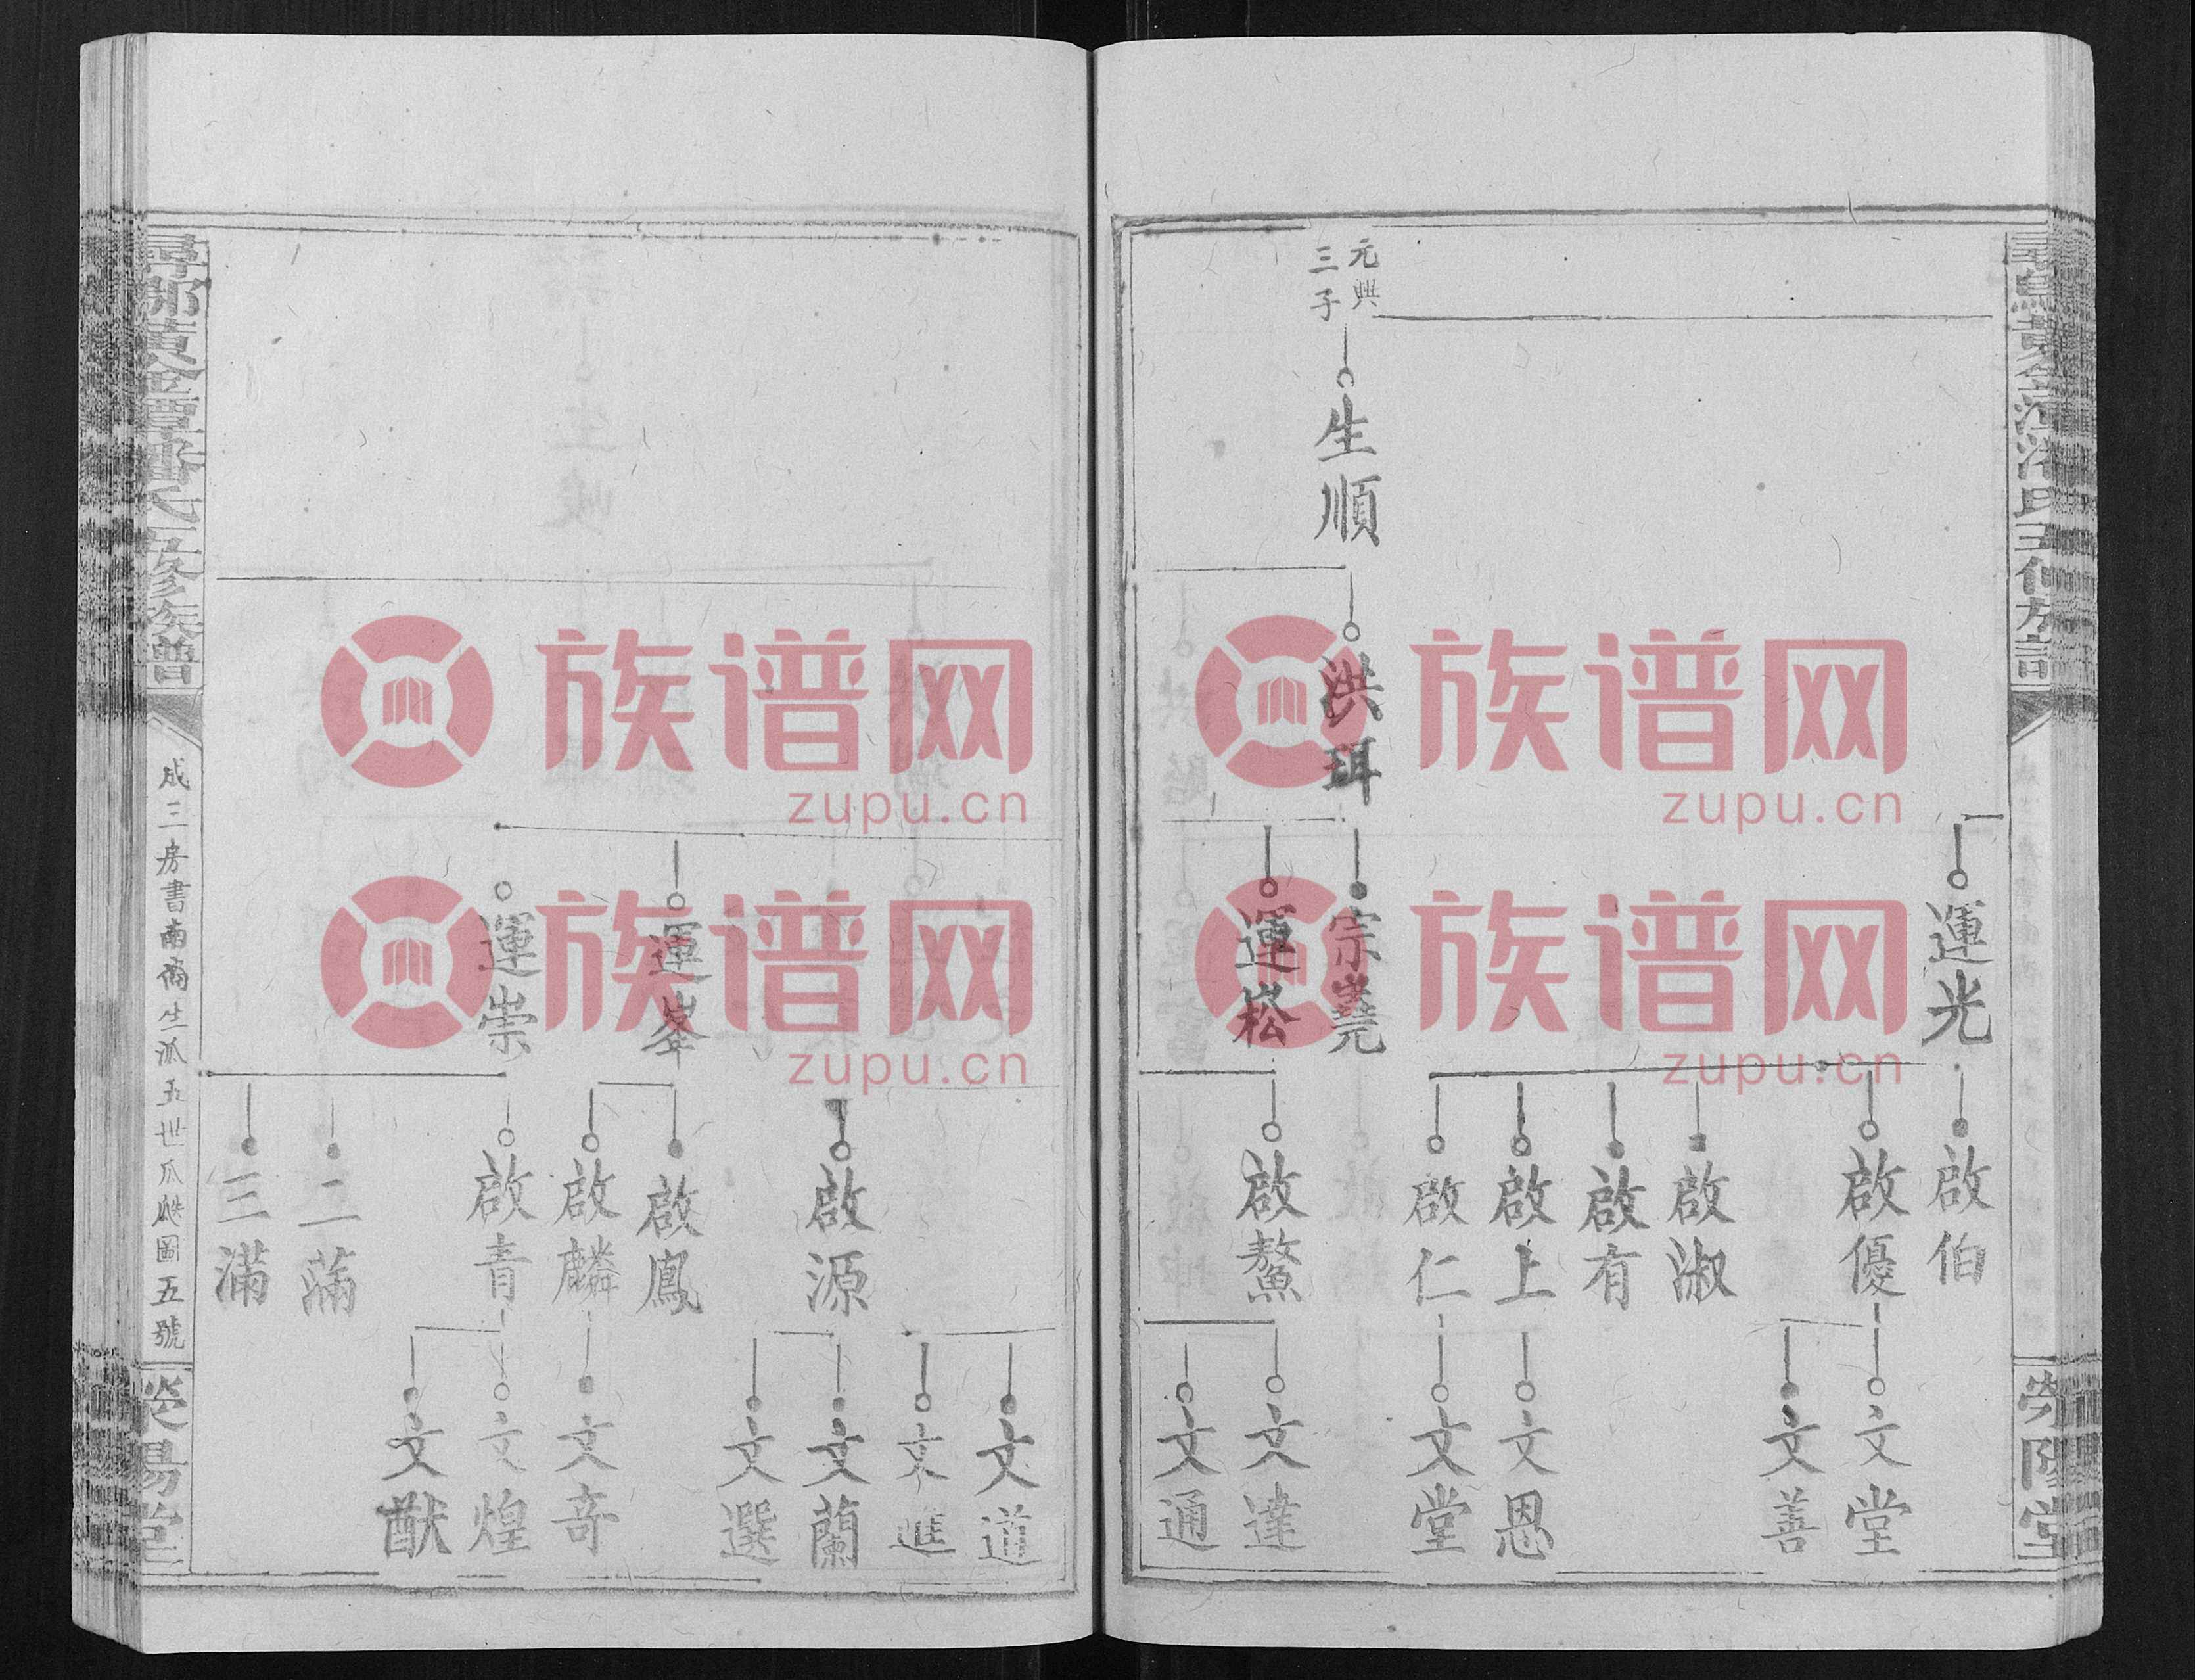 元興
三子
生順
洪珥
運光
宗嶤
運崧
啟伯
啟優
啟淑
啟有
啟上
啟仁
啟鰲
文堂
文善
文恩
文堂
文達
文通
運峯
運崇
啟源
啟鳳
啟麟
啟青
二滿
三滿
文道
文進
文蘭
文選
文奇
文煌
文猷
潯鄔黃金潭潘氏五修族譜
成三房書南衞生派五世瓜瓞圖五號
堂
族谱网
zupu.cn
族谱网
zupu.cn
族谱网
zupu.cn
族谱网
zupu.cn